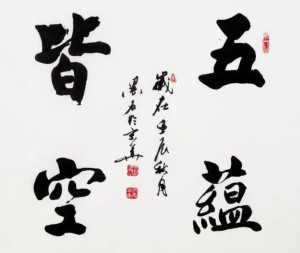 五蘊
皆空
歲在壬辰秋月
墨石於京華